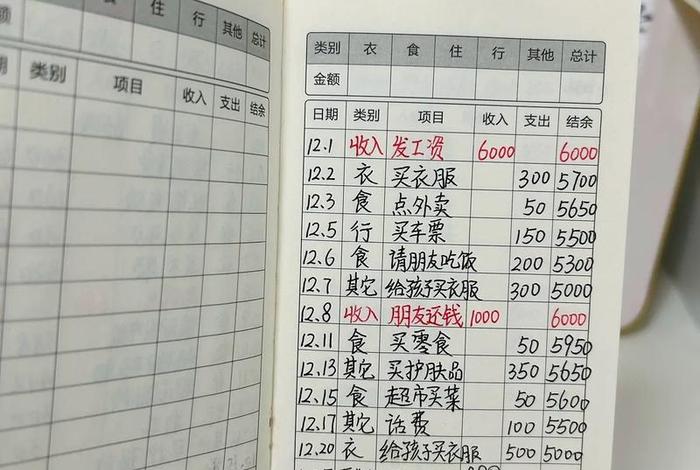 食 住 行 其他 总计
金额
类别 项目 收入 支出 结余
类别 衣 食 住 行 其他 总计
金额
日期 类别 项目 收入 支出 结余
12.1 收入 发工资 6000 6000
12.2 衣 买衣服 300 5700
12.3 食 点外卖 50 5650
12.5 行 买车票 150 5500
12.6 食 请朋友吃饭 200 5300
12.7 其它 给孩子买衣服 300 5000
12.8 收入 朋友还钱 1000 6000
12.11 食 买零食 50 5950
12.13 其它 买护肤品 350 5650
12.15 食 超市买菜 50 5600
12.17 其它 话费 100 5500
12.20 衣 给孩子买衣服 500 5000